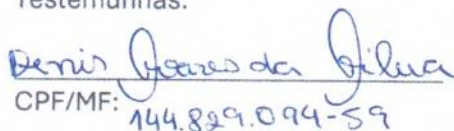 Testemunhas:
Denis Soares da Silva
CPF/MF: 144.829.094-59